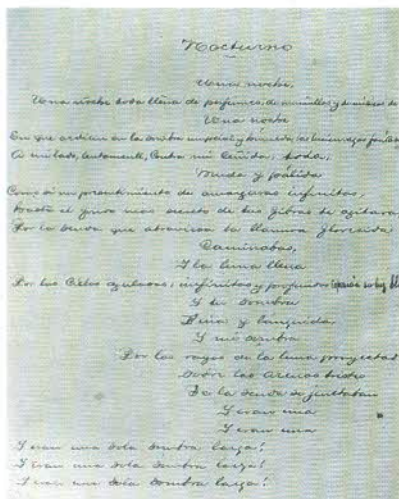 Nocturno
Una noche,
Una noche toda llena de perfumes, de murmullos y de músicas de
Una noche
En que ardían en la sombra nupcial y húmeda, las luciérnagas
A mi lado, lentamente, contra mí ceñida, toda,
Muda y pálida
Como si un presentimiento de amarguras infinitas,
hasta el más secreto de tus fibras te agitara,
Por la senda que atraviesa la llanura florecida
Caminabas,
Y la luna llena
Por los cielos azulosos, infinitos y profundos esparcía su luz
Y tu sombra
Fina y lánguida
Y mi sombra
Por los rayos de la luna proyectada
Sobre las arenas tristes
De la senda se juntaban
Y eran una
Y eran una
Y eran una sola sombra larga!
Y eran una sola sombra larga!
Y eran una sola sombra larga!